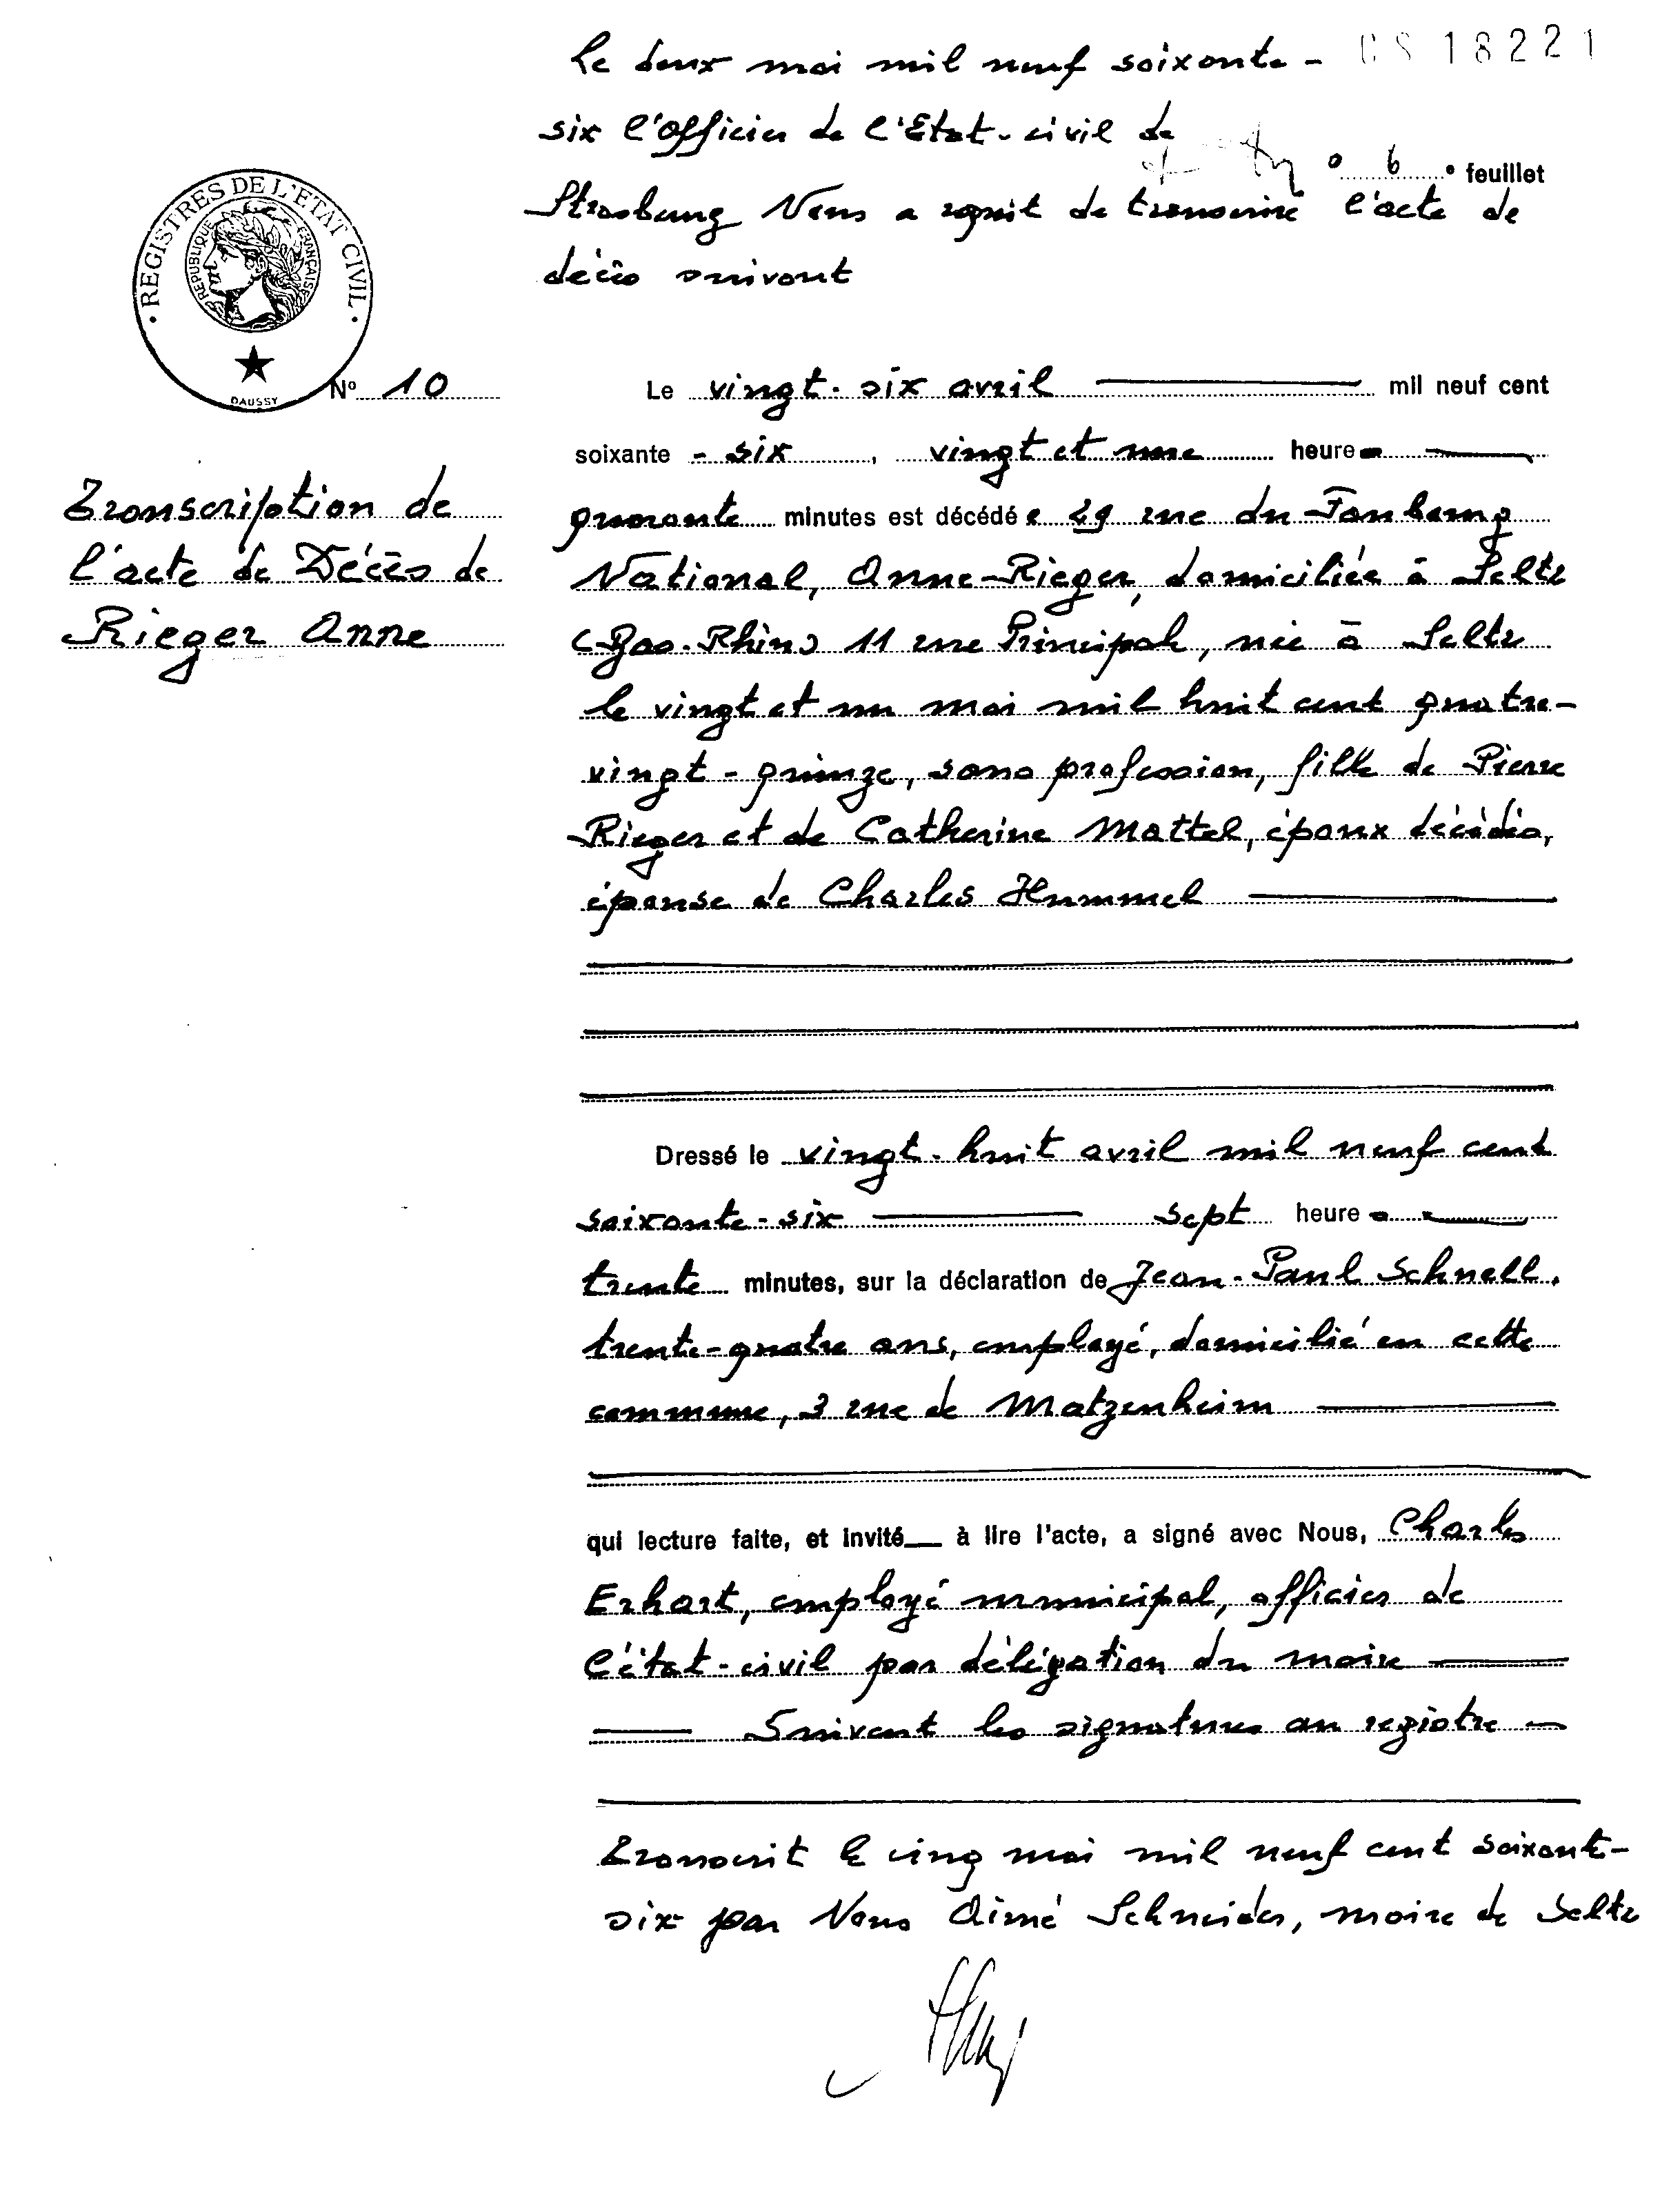 Le deux mai mil neuf soixante- CS 18221
six l'Officier de l'Etat-civil de
6e feuillet
Strasbourg Nous a requit de transcrire l'acte de
décès suivant
REGISTRES DE L'ETAT CIVIL
REPUBLIQUE FRANÇAISE
DAUSSY
N° 10
Transcription de
l'acte de Décès de
Rieger Anne
Le vingt-six avril mil neuf cent
soixante -six, vingt et une heures
quarante minutes est décédée 29 rue du Faubourg
National, Anne Rieger, domiciliée à Seltz
(Bas-Rhin) 11 rue Principale, née à Seltz
le vingt et un mai mil huit cent quatre-
vingt-quinze, sans profession, fille de Pierre
Rieger et de Catherine Mattel, époux décédés,
épouse de Charles Hummel
Dressé le vingt-huit avril mil neuf cent
soixante-six sept heures
trente minutes, sur la déclaration de Jean-Paul Schnell,
trente-quatre ans, employé, domicilié en cette
commune, 3 rue de Matzenheim
qui lecture faite, et invité à lire l'acte, a signé avec Nous, Charles
Erhart, employé municipal, officier de
l'état-civil par délégation du maire
Suivent les signatures au registre
Transcrit le cinq mai mil neuf cent soixante-
six par Nous Aimé Schneider, maire de Seltz